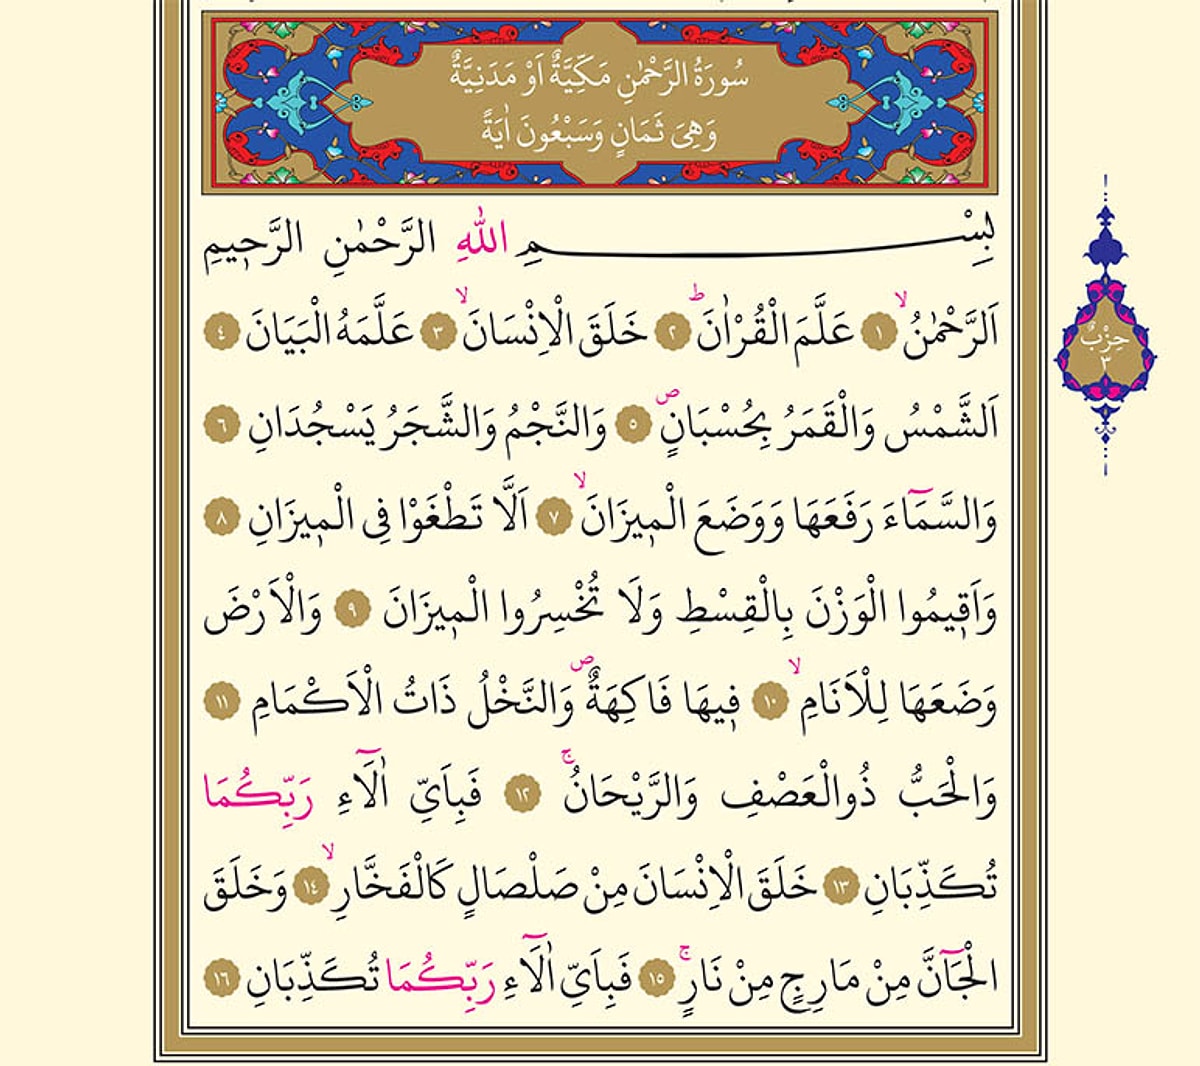 سُورَةُ الرَّحْمٰنِ مَكِّيَّةٌ اَوْ مَدَنِيَّةٌ
وَهِىَ ثَمَانٍ وَسَبْعُونَ اٰيَةً
بِسْمِ اللّٰهِ الرَّحْمٰنِ الرَّح۪يمِ
اَلرَّحْمٰنُۙ ﴿١﴾ عَلَّمَ الْقُرْاٰنَۜ ﴿٢﴾ خَلَقَ الْاِنْسَانَۙ ﴿٣﴾ عَلَّمَهُ الْبَيَانَ ﴿٤﴾
اَلشَّمْسُ وَالْقَمَرُ بِحُسْبَانٍۖ ﴿٥﴾ وَالنَّجْمُ وَالشَّجَرُ يَسْجُدَانِ ﴿٦﴾
وَالسَّمَٓاءَ رَفَعَهَا وَوَضَعَ الْم۪يزَانَۙ ﴿٧﴾ اَلَّا تَطْغَوْا فِى الْم۪يزَانِ ﴿٨﴾
وَاَق۪يمُوا الْوَزْنَ بِالْقِسْطِ وَلَا تُخْسِرُوا الْم۪يزَانَ ﴿٩﴾ وَالْاَرْضَ
وَضَعَهَا لِلْاَنَامِۙ ﴿١٠﴾ ف۪يهَا فَاكِهَةٌۖ وَالنَّخْلُ ذَاتُ الْاَكْمَامِ ﴿١١﴾
وَالْحَبُّ ذُوالْعَصْفِ وَالرَّيْحَانُۚ ﴿١٢﴾ فَبِاَىِّ اٰلَٓاءِ رَبِّكُمَا
تُكَذِّبَانِ ﴿١٣﴾ خَلَقَ الْاِنْسَانَ مِنْ صَلْصَالٍ كَالْفَخَّارِۙ ﴿١٤﴾ وَخَلَقَ
الْجَٓانَّ مِنْ مَارِجٍ مِنْ نَارٍۚ ﴿١٥﴾ فَبِاَىِّ اٰلَٓاءِ رَبِّكُمَا تُكَذِّبَانِ ﴿١٦﴾
حِزْبٌ
٣